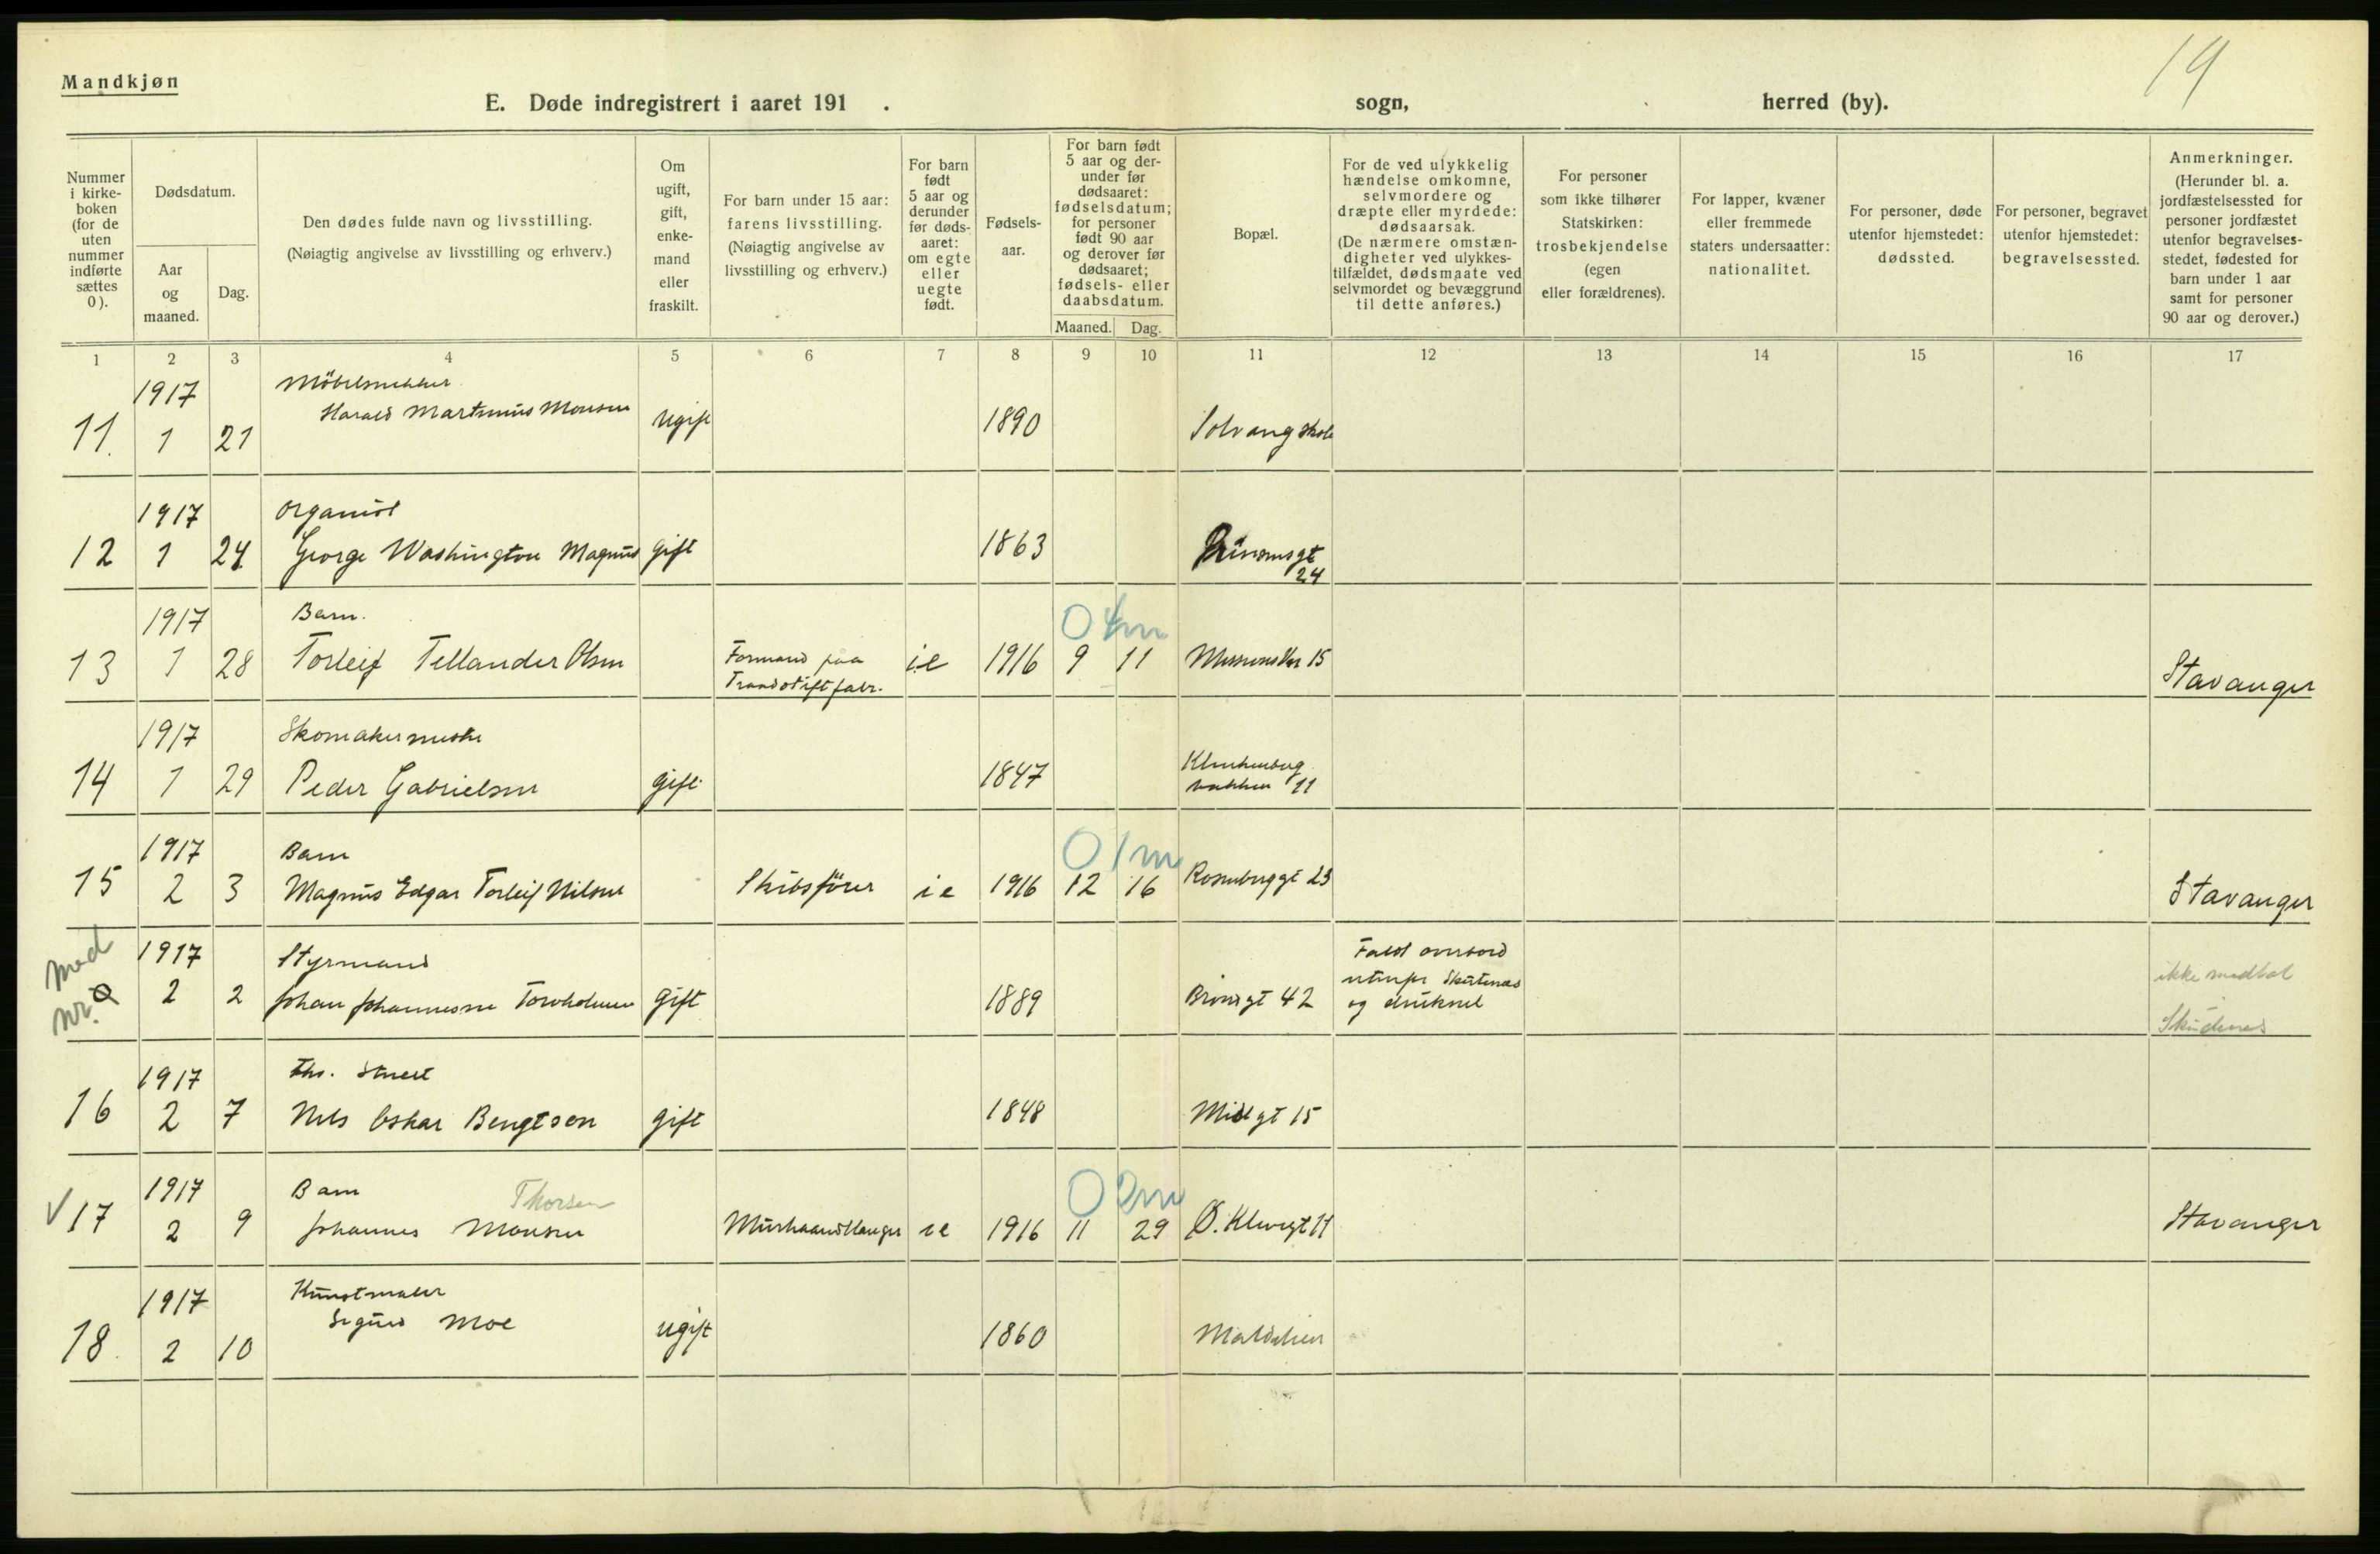 19
Mandkjøn
E. Døde indregistrert i aaret 191 . sogn, herred (by).
Nummer i kirke-boken (for de uten nummer indførte sættes 0).
Dødsdatum.
Aar og maaned.
Dag.
Den dødes fulde navn og livsstilling.
(Nøiagtig angivelse av livsstilling og erhverv.)
Om ugift, gift, enke-mand eller fraskilt.
For barn under 15 aar: farens livsstilling.
(Nøiagtig angivelse av livsstilling og erhverv.)
For barn født 5 aar og derunder før døds-aaret: om egte eller uegte født.
Fødsels-aar.
For barn født 5 aar og der-under før dødsaaret: fødselsdatum; for personer født 90 aar og derover før dødsaaret; fødsels- eller daabsdatum.
Maaned. Dag.
Bopæl.
For de ved ulykkelig hændelse omkomne, selvmordere og dræpte eller myrdede: dødsaarsak.
(De nærmere omstæn-digheter ved ulykkes-tilfældet, dødsmaate ved selvmordet og bevæggrund til dette anføres.)
For personer som ikke tilhører Statskirken: trosbekjendelse (egen eller forældrenes).
For lapper, kvæner eller fremmede staters undersaatter: nationalitet.
For personer, døde utenfor hjemstedet: dødssted.
For personer, begravet utenfor hjemstedet: begravelsessted.
Anmerkninger.
(Herunder bl. a. jordfæstelsessted for personer jordfæstet utenfor begravelses-stedet, fødested for barn under 1 aar samt for personer 90 aar og derover.)
1 2 3 4 5 6 7 8 9 10 11 12 13 14 15 16 17
1917 Möbelsnekker
11. 1 21 Harald Martinius Monsen Ugift 1890 Solvang skole
1917 Organist
12 1 24 George Washington Magnus Gift 1863 24
1917 Barn. 0 4m
13 1 28 Torleif Tellander Olsen Formand paa i.e 1916 9 11 15
Traadstiftfabr. Stavanger
1917 Skomakermester
14 1 29 Peder Gabrielsen gift 1847 Klinkenberg
bakken 11
1917 Barn 0 1m
15 2 3 Magnus Edgar Torleif Nilsen Skibsförer i e 1916 12 16 Rosenberggt 23 Stavanger
med nr. 0
1917 Styrmand Faldt overbord
2 2 Johan Johannesen Torvholmen Gift 1889 42 utenfor Skutenes
og druknet
ikke medtat
Skudenes
1917 Fhv. Stuert
16 2 7 Nils Oskar Bengtson gift 1848 Midlgt 15
1917 Barn Thorsen 0 2m
√ 17 2 9 Johannes Monsen Murhaandlanger i e 1916 11 29 Ø. Klevegt 11 Stavanger
1917 Kunstmaler
18. 2 10 Sigurd Moe ugift 1860